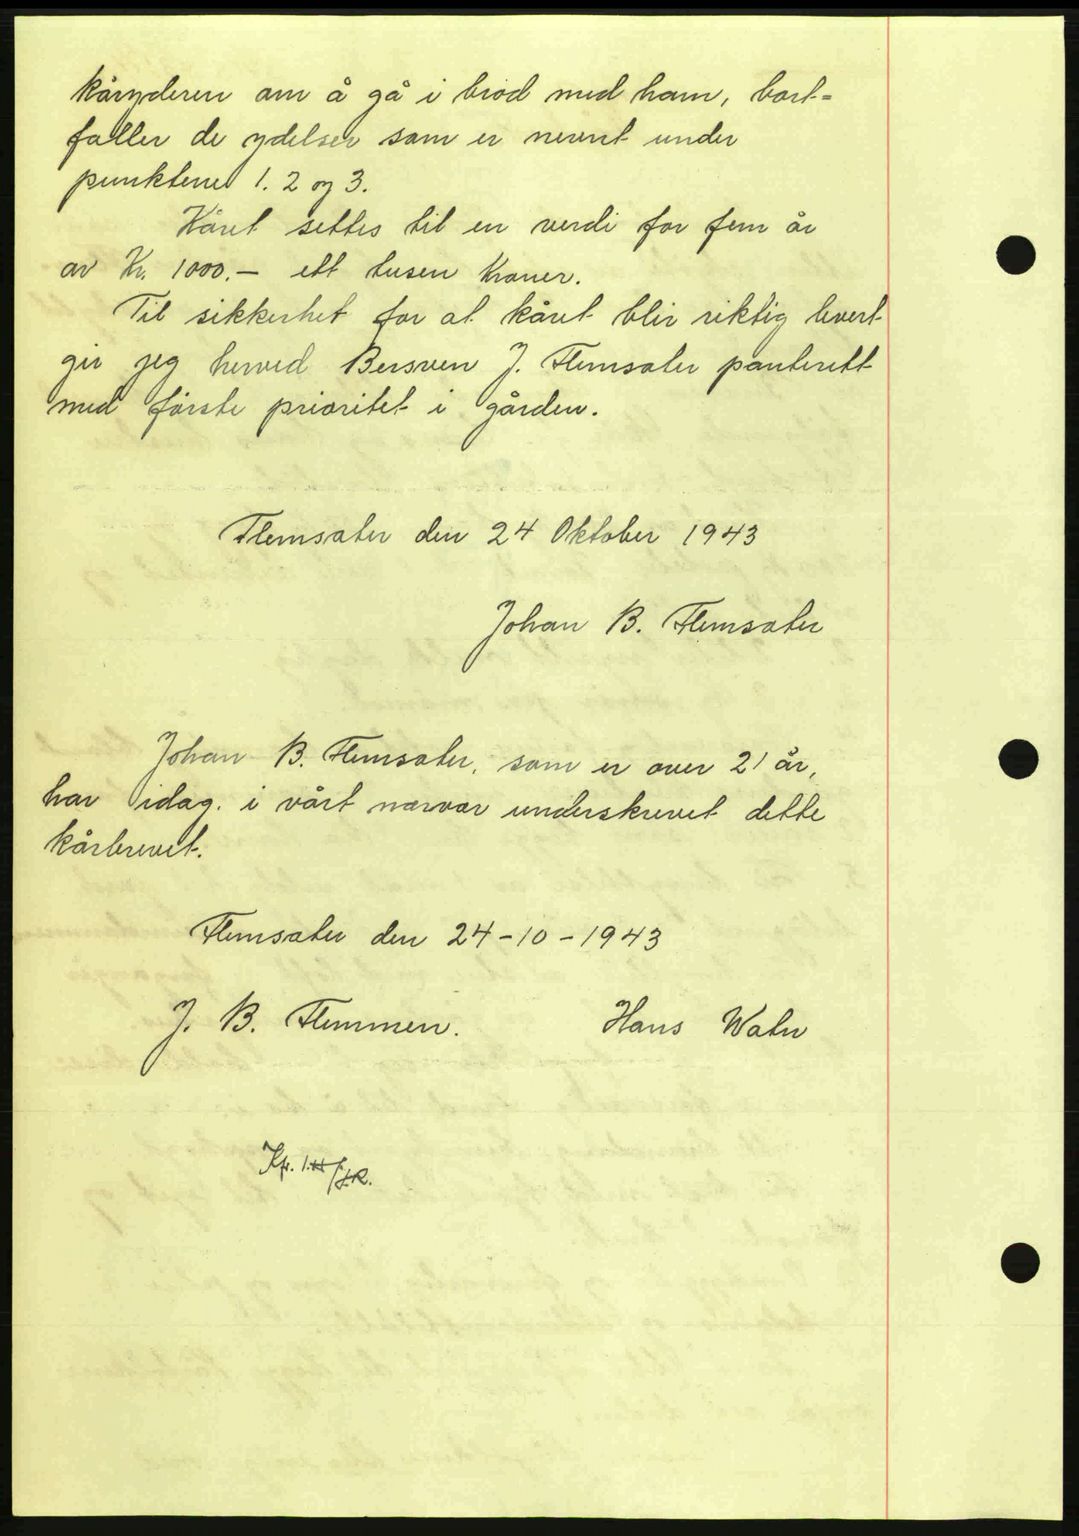 kåryderen om å gå i bröd med ham, bort=
faller de ydelser som er nevnt under
punktene 1. 2 og 3.
Kåret settes til en verdi for fem år
av Kr. 1000.— ett tusen Kroner.
Til sikkerhet for at kåret blir riktig levert
gir jeg herved Bersven J. Flemsæter panterett
med förste prioritet i gården.
Flemsæter den 24 Oktober 1943
Johan B. Flemsæter
Johan B. Flemsæter, som er over 21 år,
har idag. i vårt nærvær underskrevet dette
kårbrevet.
Flemsæter den 24-10-1943
J. B. Flemmen.
Hans Watn